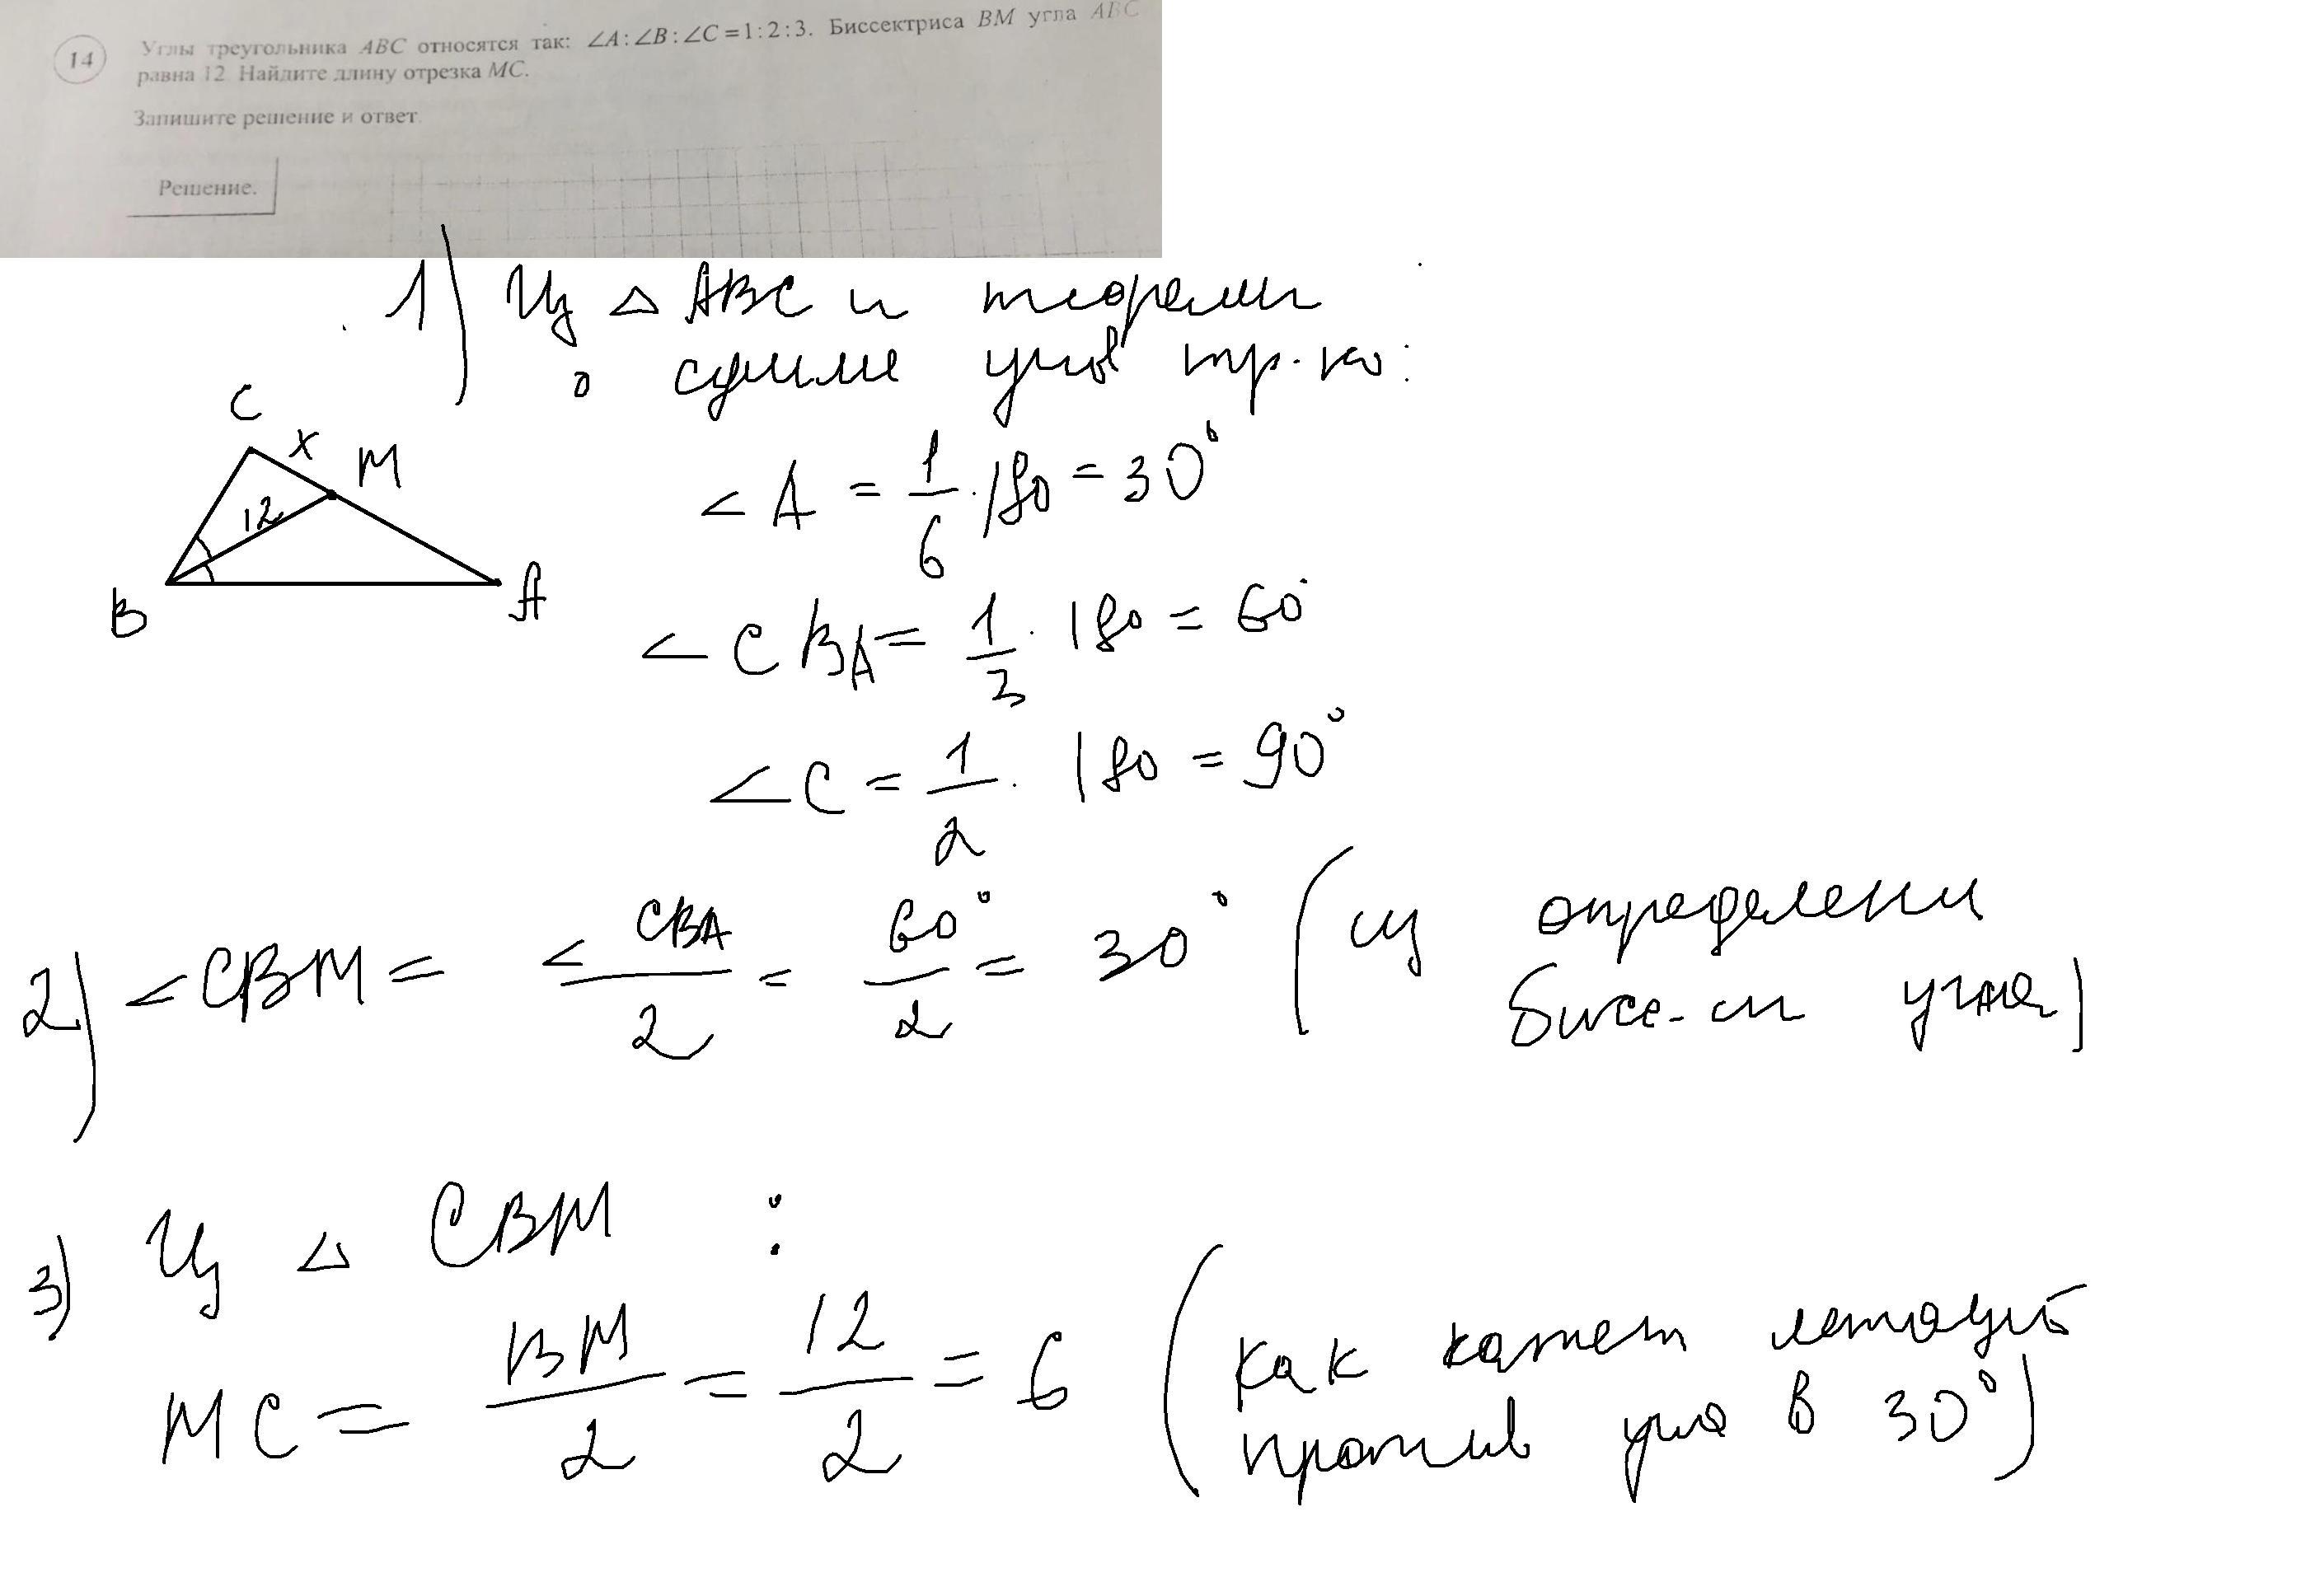 14 Углы треугольника ABC относятся так: ∠A:∠B:∠C=1:2:3. Биссектриса BM угла ABC
равна 12. Найдите длину отрезка MC.
Запишите решение и ответ.
Решение.
1) Из △ ABC и теоремы
о сумме углов тр-ка:
C
x
M
12
B
A
∠A = 1/6 · 180 = 30°
∠CBA = 1/3 · 180 = 60°
∠C = 1/2 · 180 = 90°
2) ∠CBM = ∠CBA/2 = 60°/2 = 30° (из определени
бисс-сы угла)
3) Из △ CBM :
MC = BM/2 = 12/2 = 6 (как катет лежащий
против угла в 30°)